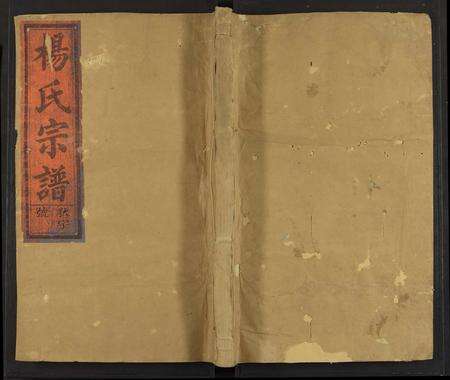 楊氏宗譜
號